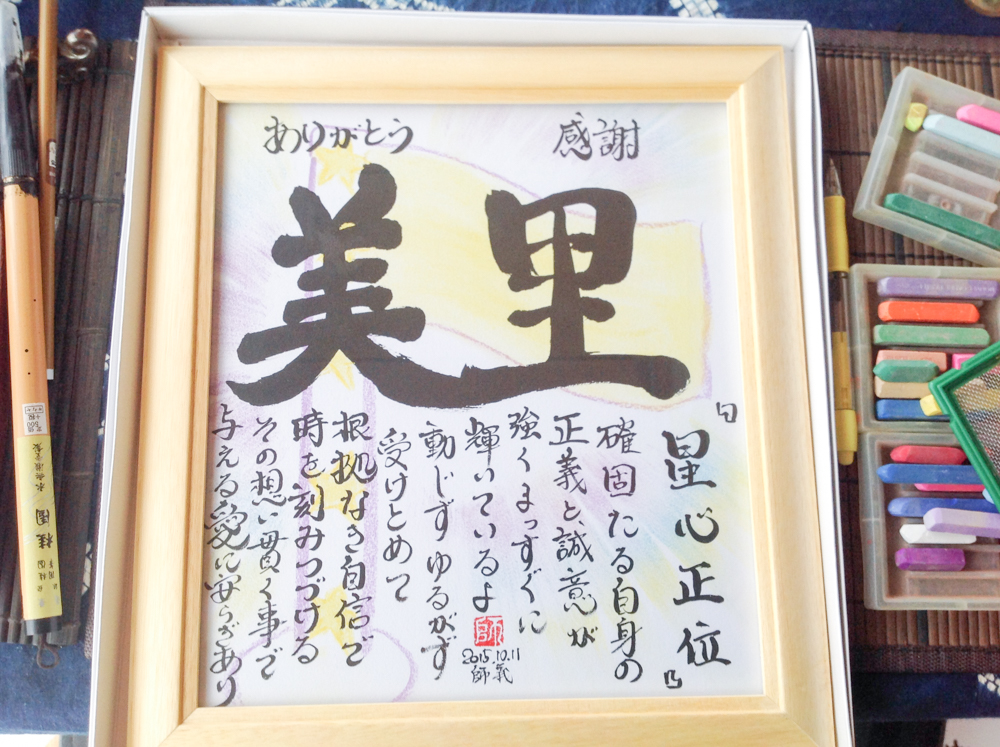 ありがとう
感謝
美里
『星心正位』
確固たる自身の
正義と、誠意が
強くまっすぐに
輝いているよ
動じずゆるがず
受けとめて
根拠なき自信で
時を刻みつづける
その想い貫く事で
与える愛に安らぎあり
師
2015.10.11